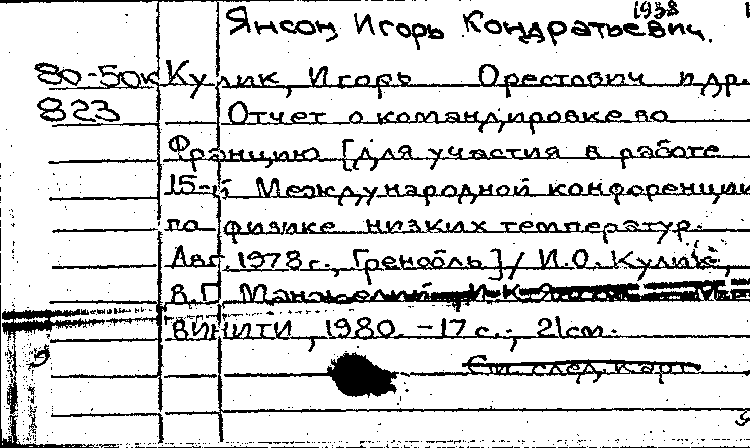 1938
Янсон Игорь Кондратьевич.
80-50к Кулик, Игорь Орестович и др.
823 Отчет о командировке во
Францию [для участия в работе
15-й Международной конференции
по физике низких температур.
Авг. 1978 г., Гренобль] / И.О. Кулик,
В.Г. Манжелий, И.К. Янсон
ВИНИТИ, 1980. - 17 с.; 21 см.
См. след. карт.